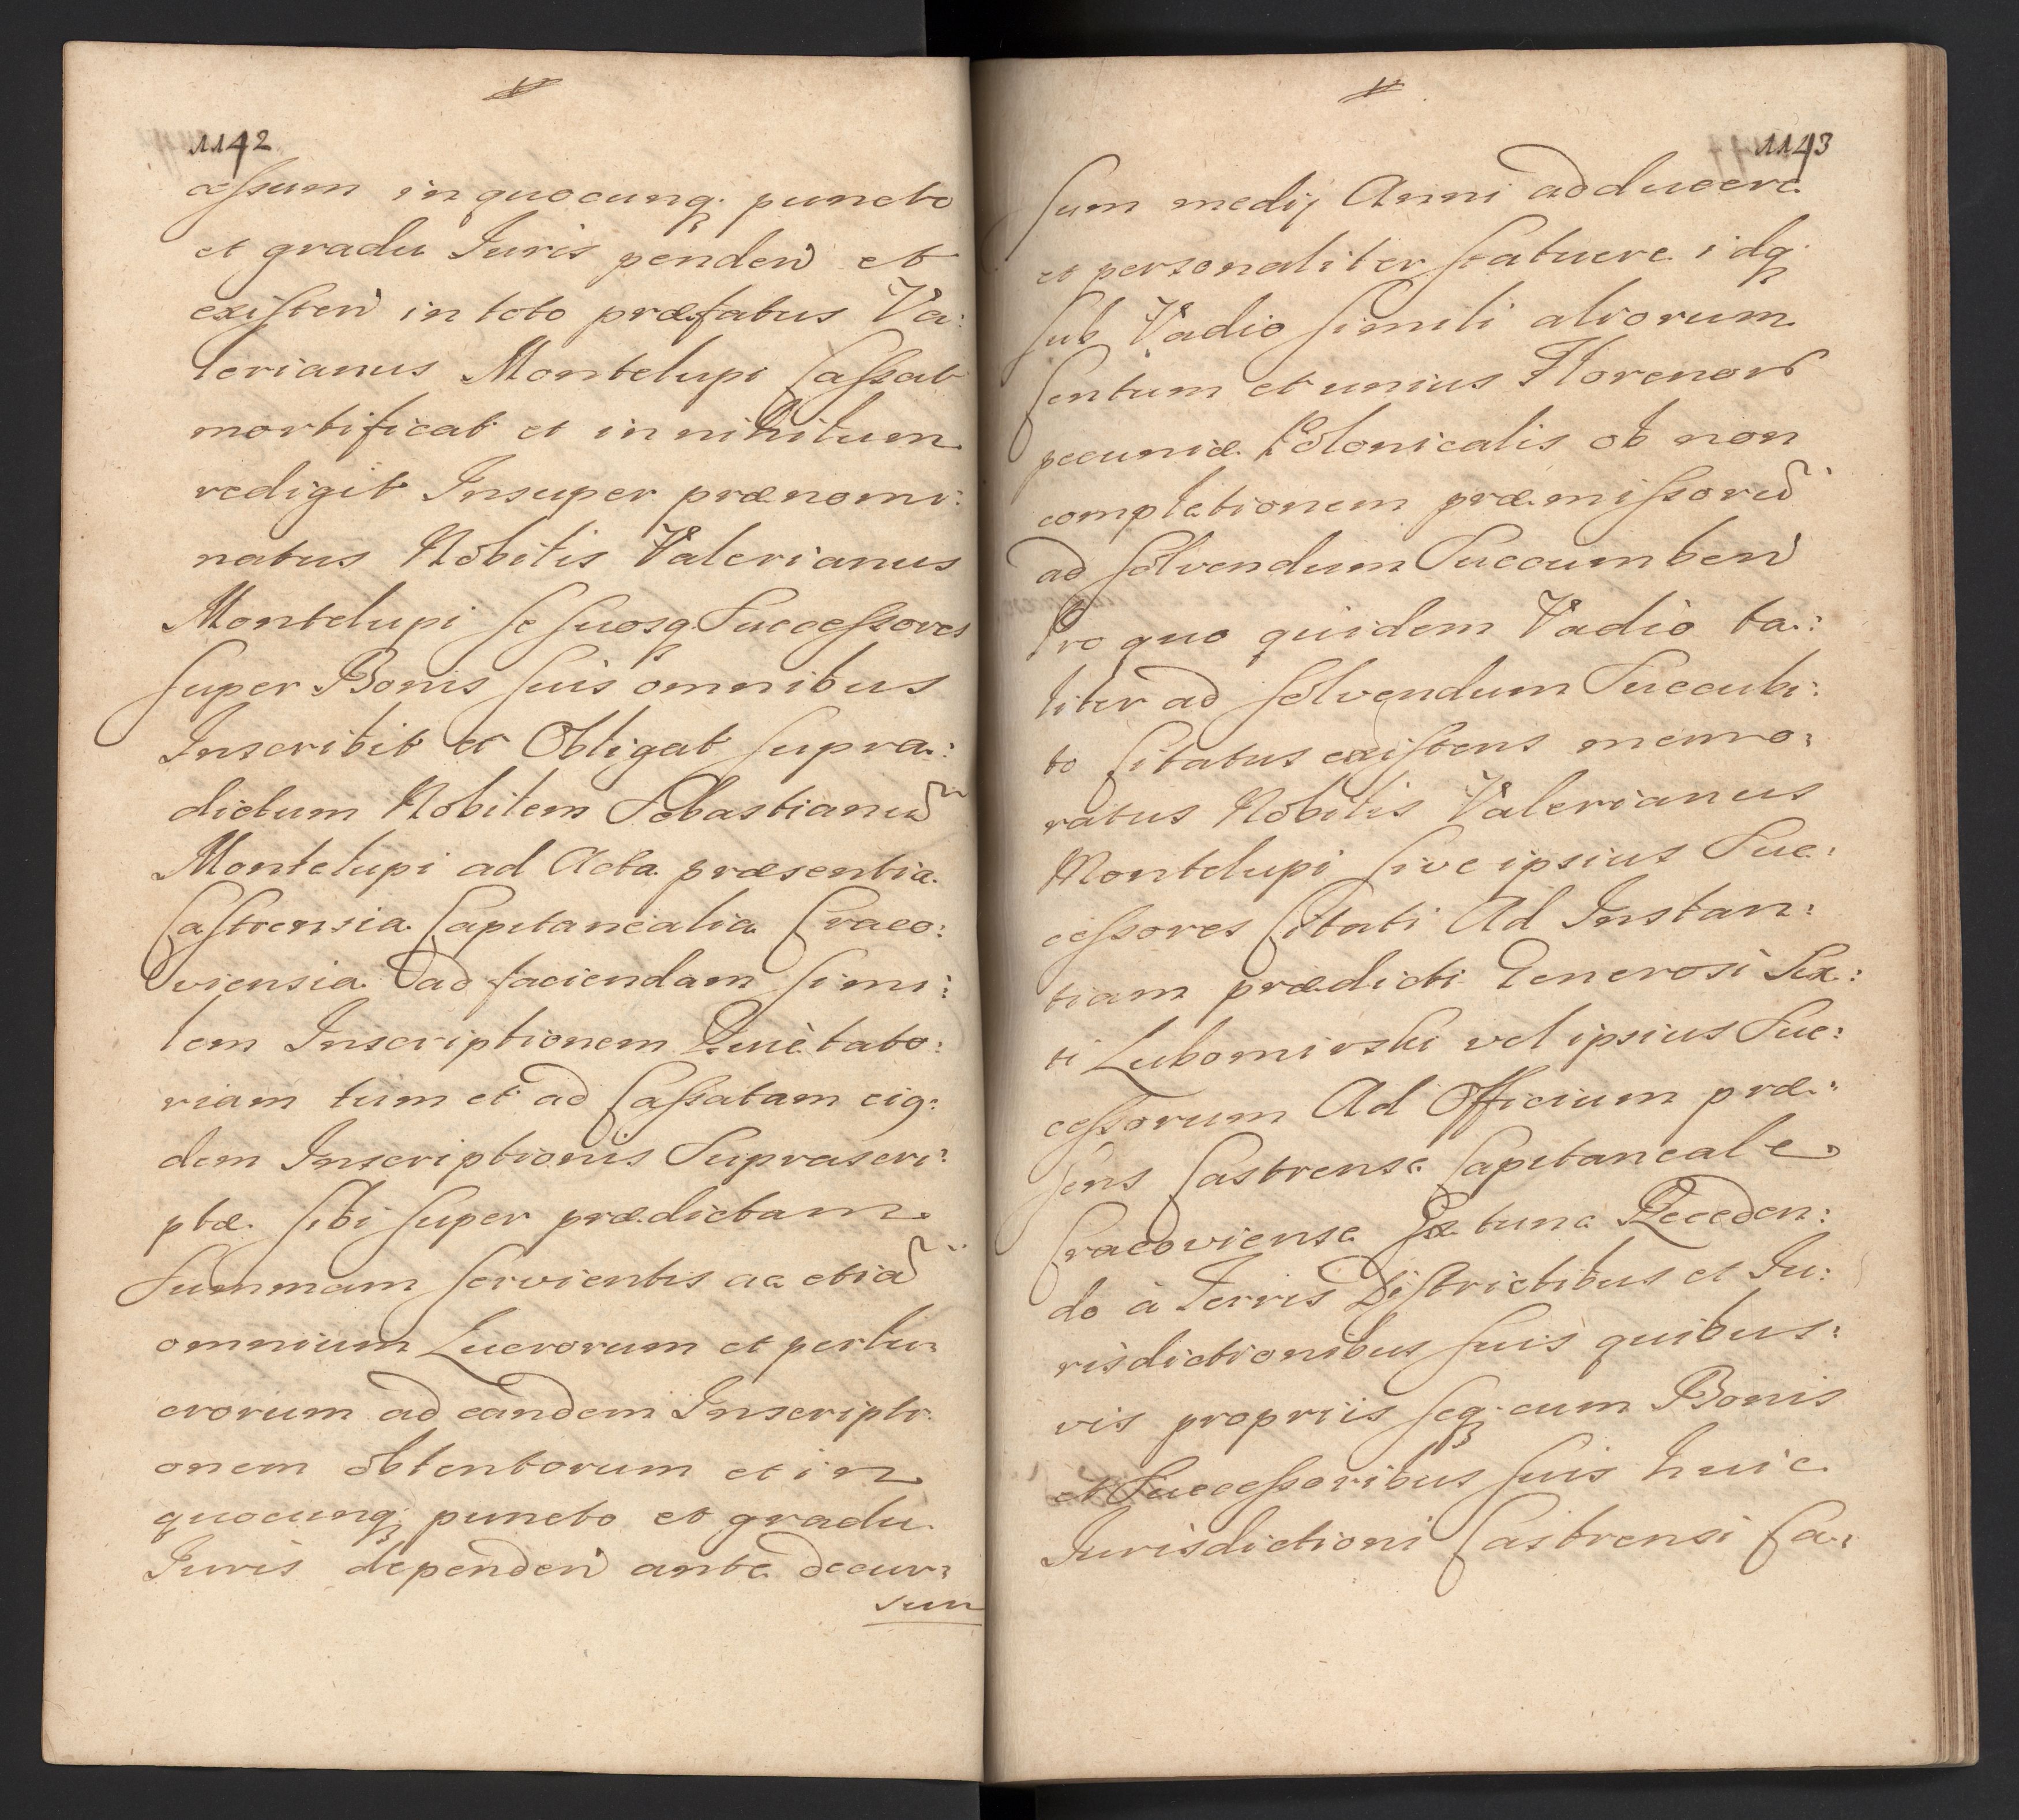 1142
cessum in quocunq. puncto
et gradu Iuris penden̄ et
existen̄ in toto præfatus Va:
lerianus Montelupi Cassat
mortificat et in nihilum
redigit Insuper prænomi:
natus Nobilis Valerianus
Montelupi se suosq. Successores
super Bonis suis omnibus
Inscribit et Obligat supra:
dictum Nobilem Sebastianū
Montelupi ad Acta præsentia
Castrensia Capitanealia Craco:
viensia ad faciendam simi:
lem Inscriptionem Quietato:
riam tum et ad Cassatam eig:
dem Inscriptionis Suprascri:
ptæ sibi super prædictam
Summam servientis ac etiā
omnium Lucrorum et perlu:
crorum ad eandem Inscripti:
onem obtentorum et in
quocunq. puncto et gradu
Iuris dependen̄ ante decur:
sum
1143
sum medij Anni adducere
et personaliter statuere idq.
sub Vadio simili aliorum
Centum et unius Florenor̄
pecuniæ Polonicalis ob non
completionem præmissorū
ad solvendum Succumben̄
Pro quo quidem Vadio ta:
liter ad solvendum Succubi:
to Citatus existens memo:
ratus Nobilis Valerianus
Montelupi sive ipsius Suc:
cessores Citati Ad Instan:
tiam prædicti Generosi Sex:
ti Lubomirski vel ipsius Suc:
cessorum Ad Officium præ:
sens Castrense Capitaneale
Cracoviense Ex tunc Receden:
do à Terris Districtibus et Iu:
risdictionibus suis quibus:
vis propriis seq. cum Bonis
et Successoribus suis huic
Iurisdictioni Castrensi Ca: